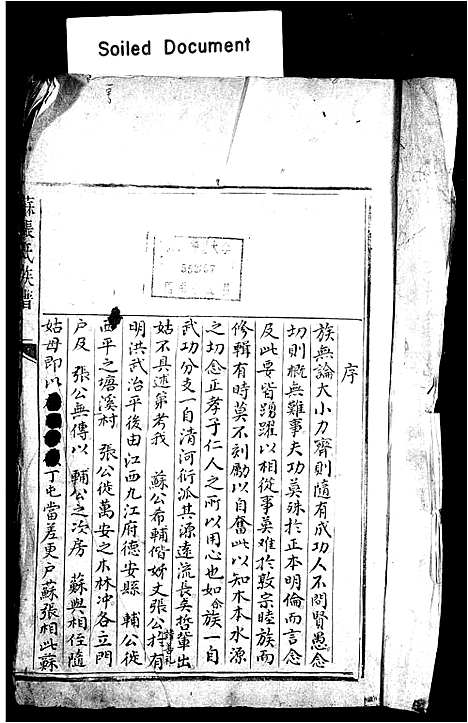 Soiled Document
序
族無論大小力齊則隨有成功人不問賢愚念
切則概無難事夫功莫殊於正本明倫而言念
及此要皆踴躍以相從事莫難於敦宗睦族而
修輯有時莫不刻勵以自奮此以知木本水源
之切念正孝子仁人之所以用心也如余族一自
武功分支一自清河衍派其源遠流長矣哲輩出
姑不具述第考我 蘇公希輔偕妍丈張公 有
明洪武治平後由江西九江府德安縣 輔公徙
西平之塘溪村 張公徙萬安之木林冲各立門
戶及 張公無傳以 輔公之次房 蘇與相侄隨
姑母即以 丁屯當差更戶蘇張相此蘇
蘇張氏族譜